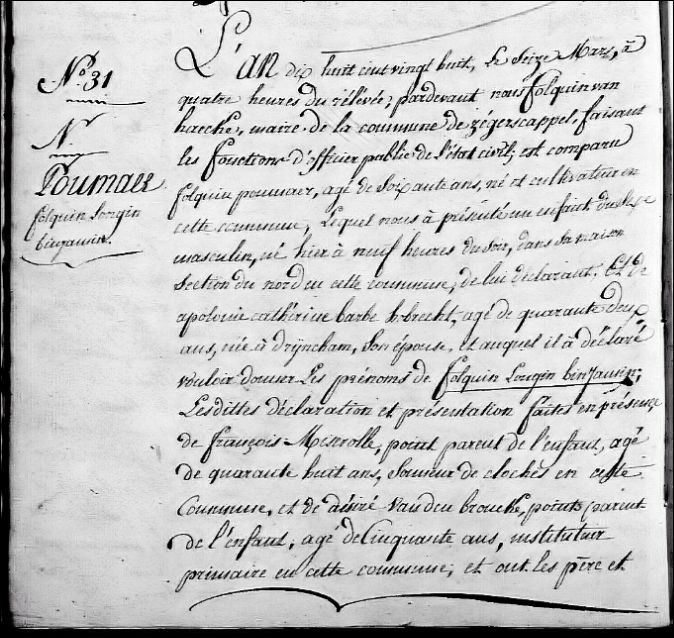 N.° 31
N.
Poumaer
folquin Longin
binjamin.
L'an dix huit cent vingt huit, Le Seize Mars, à
quatre heures du rélévée; pardevant nous folquin van
haecke, maire de la commune de zégerscappel, faisant
les fonctions d'officier public de l'état civil; est comparu
folquin poumaer, agé de Soixante ans, né et cultivateur en
cette commune, Lequel nous à présenté un enfant du Sexe
masculin, né hier à neuf heures du soir, dans sa maison
Section du nord en cette commune, de lui déclarant, Et de
apolonie cathérine barbe agé de quarante deux
ans, née à drijncham, Son épouse, et auquel il à déclaré
vouloir donner Les prénoms de folquin Longin binjamin;
Lesdittes déclaration et présentation faites en présence
de françois Miserolle, point parent de l'enfant, agé
de quarante huit ans, Sonneur de cloches en cette
Commune, et de désiré vanden brouche, point parent
de l'enfant, agé de Cinquante ans, instituteur
primaire en cette commune; et ont les père et